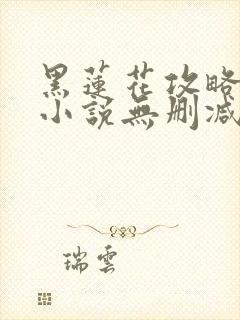 黑蓮花攻略
小說無刪減
瑞雲